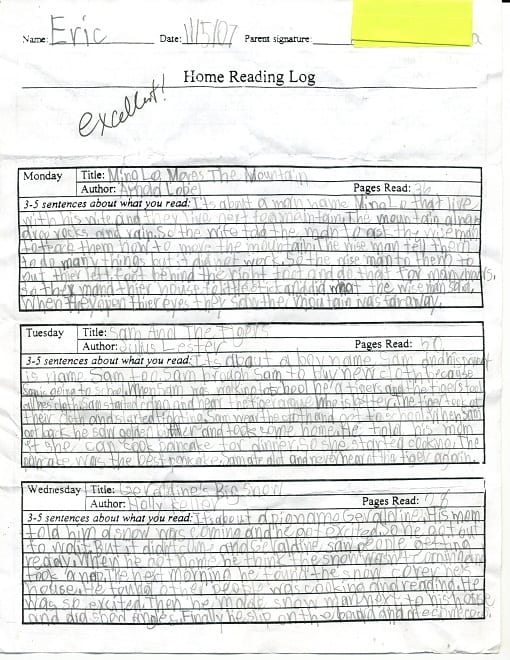 Name: Eric Date: 11/5/07 Parent signature:
Home Reading Log
excellent!
Monday Title: Ming Lo Moves The Mountain
Author: Arnold Lobel Pages Read: 36
3-5 sentences about what you read: It's about a man name Ming Lo that live
with his wife and they live next to a maintain. The mountain
drop rocks and rain. So the wife told the man to ask the wise man
to them how to move the mountain. The wise man tell them
to do many things but it did not work. So the wise man to them to
put thier left foot behind the right foot and do that for many hours,
So they thier house to little stick and did what the wise man said,
When they open thier eyes they saw the mountain was far away.
Tuesday Title: Sam And The Tigers
Author: Julius Lester Pages Read: 50
3-5 sentences about what you read: It's about a boy name Sam and his parent
is name Sam too. Sam to buy new cloth cause
Sam is going to school. When Sam was walking to school he a tigers and the tigers took
all his cloth. Sam started and hear the tigers argue who is better. The tiger took of
their cloth and started. Sam wear the cloth and got to school. When Sam
got back he saw golden and took some home. He told his mom
if she can cook pancake for dinner. So she started cooking. The
pancake was the best pancake. Sam ate and never hear the tiger again.
Wednesday Title: Geraldine's Big Snow
Author: Holly Keller Pages Read: 26
3-5 sentences about what you read: It's about a pig name Geraldine. His mom
told him a snow was coming and he got excited. So he got out
to wait. But it didn't come and Geraldine saw people getting
ready. When he got home he think the snow wasn't coming and
took a nap. The next morning he the snow cover hek
house. He found other people was looking and reading. He
was so excited. Then he made snow man next to his house
and did snow angles. Finally he slip on the